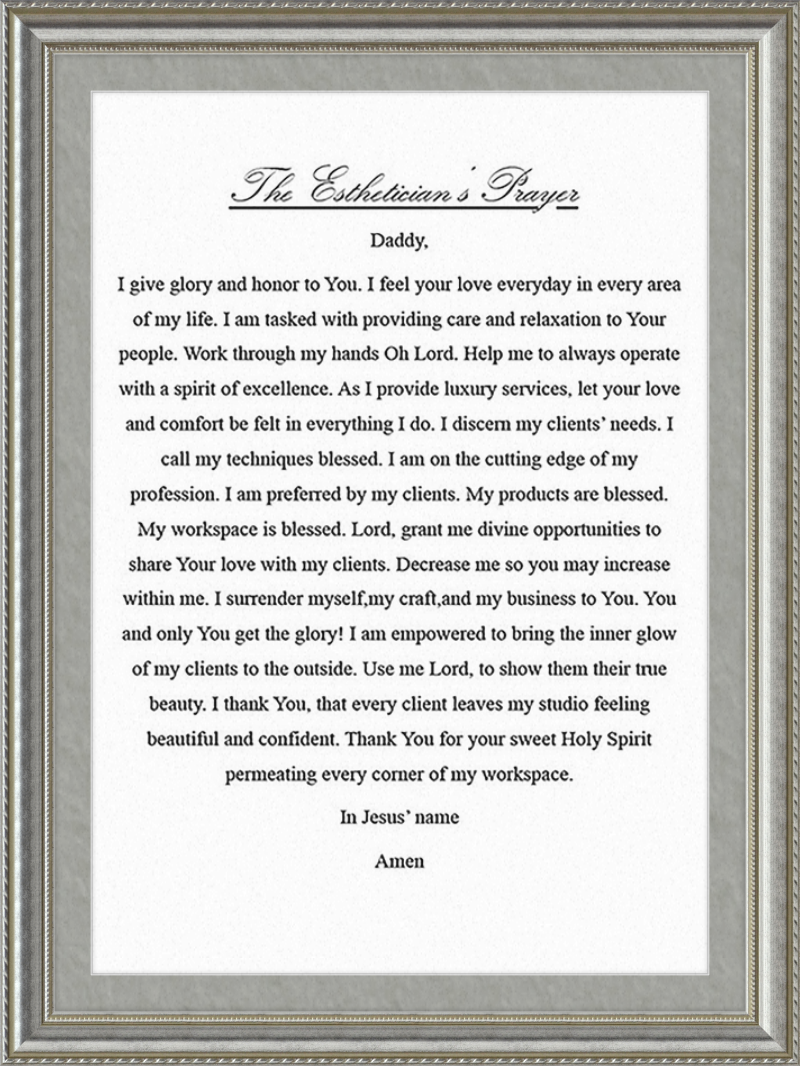 The Esthetician's Prayer
Daddy,
I give glory and honor to You. I feel your love everyday in every area
of my life. I am tasked with providing care and relaxation to Your
people. Work through my hands Oh Lord. Help me to always operate
with a spirit of excellence. As I provide luxury services, let your love
and comfort be felt in everything I do. I discern my clients’ needs. I
call my techniques blessed. I am on the cutting edge of my
profession. I am preferred by my clients. My products are blessed.
My workspace is blessed. Lord, grant me divine opportunities to
share Your love with my clients. Decrease me so you may increase
within me. I surrender myself,my craft,and my business to You. You
and only You get the glory! I am empowered to bring the inner glow
of my clients to the outside. Use me Lord, to show them their true
beauty. I thank You, that every client leaves my studio feeling
beautiful and confident. Thank You for your sweet Holy Spirit
permeating every corner of my workspace.
In Jesus’ name
Amen